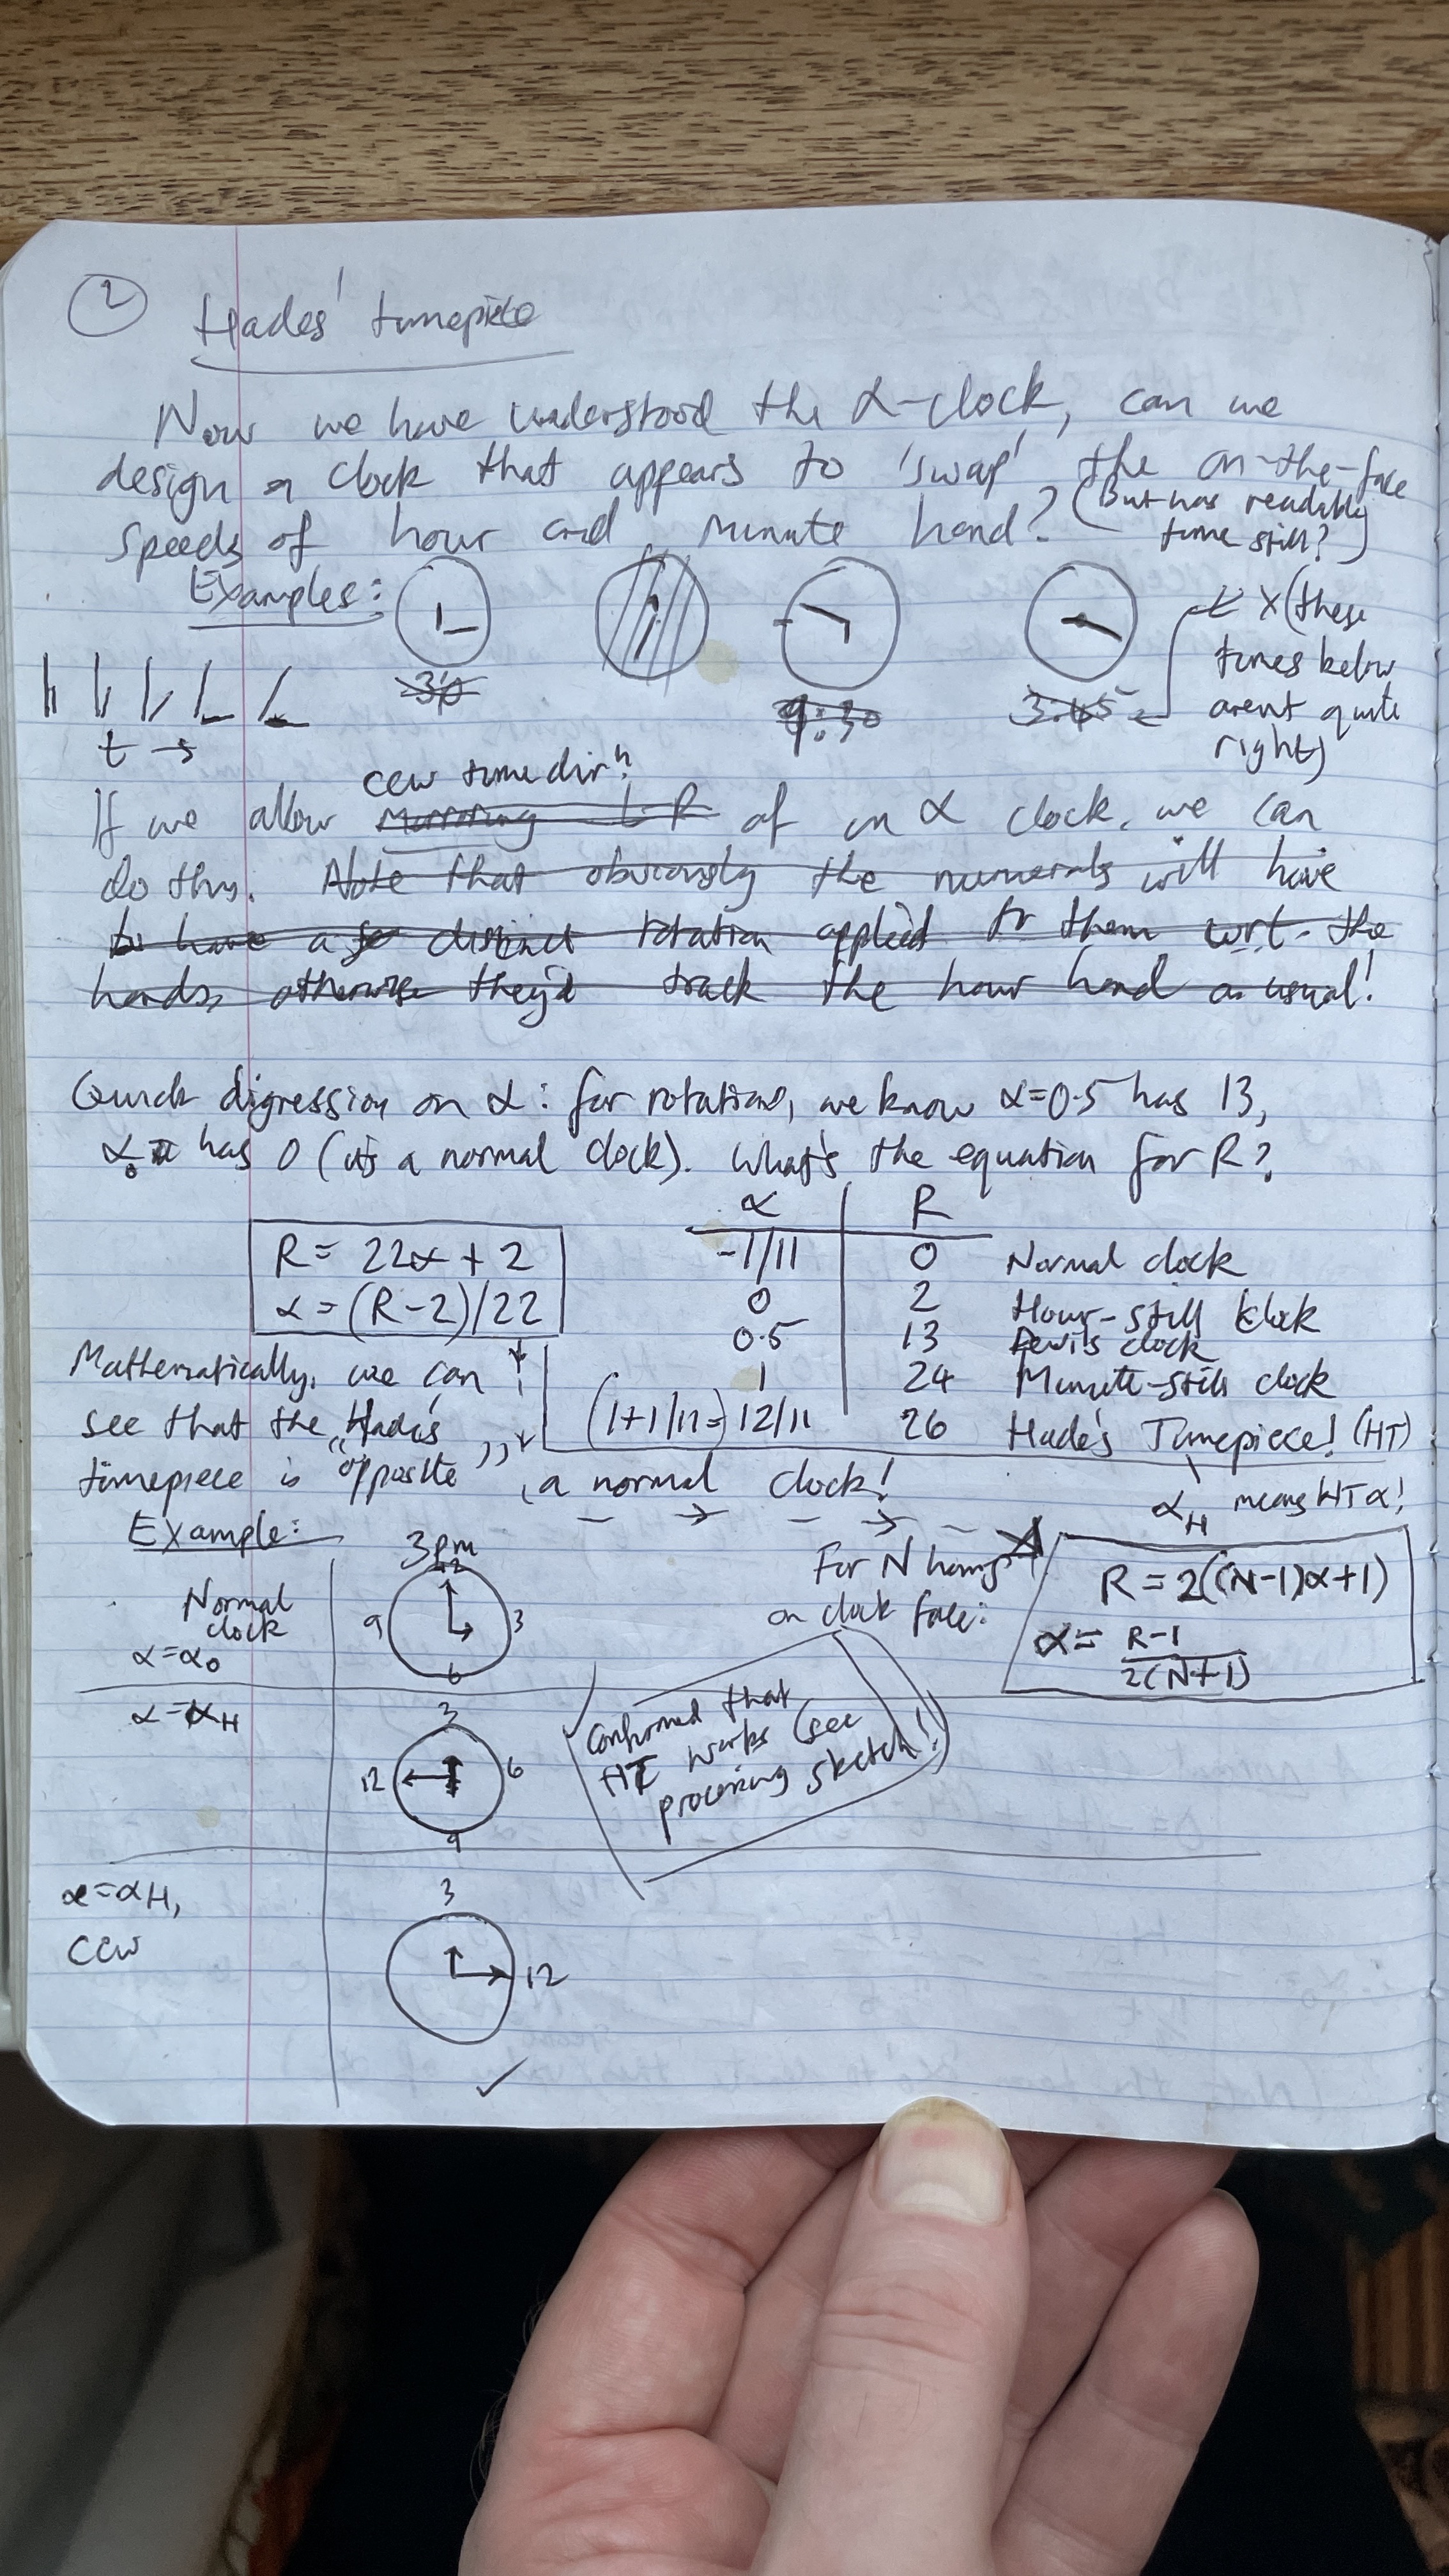 2 Hades' timepiece
Now we have understood the α-clock, can we
design a clock that appears to 'swap' the on-the-face
speeds of hour and minute hand? (But has readably
time still?)
Examples:
t →
9:30
3.45
X (these
times below
arent quite
right)
ccw time dirⁿ
If we allow Mirroring L-R of an α clock, we can
do this. Note that obviously the numerals will have
to have a distinct rotation applied to them wrt. the
hands, otherwise they'd track the hour hand as usual!
Quick digression on α: for rotations, we know α=0.5 has 13,
α₀ has 0 (it's a normal clock). What's the equation for R?
α R
R = 22α + 2
α = (R-2)/22
-1/11 0 Normal clock
0 2 Hour-still clock
0.5 13 Devil's clock
1 24 Minute-still clock
(1+1/11=) 12/11 26 Hade's Timepiece! (HT)
Mathematically, we can
see that the "Hade's
timepiece is "opposite", a normal clock!
α_H means HT α!
Example:
3pm
Normal
clock
α=α₀
12
9 3
6
For N hours
on clock face:
R = 2((N-1)α+1)
α = R-1
2(N+1)
α=α_H
3
12 6
9
Confirmed that
HT works (see
processing sketch!)
α=α_H,
CCW
3
12